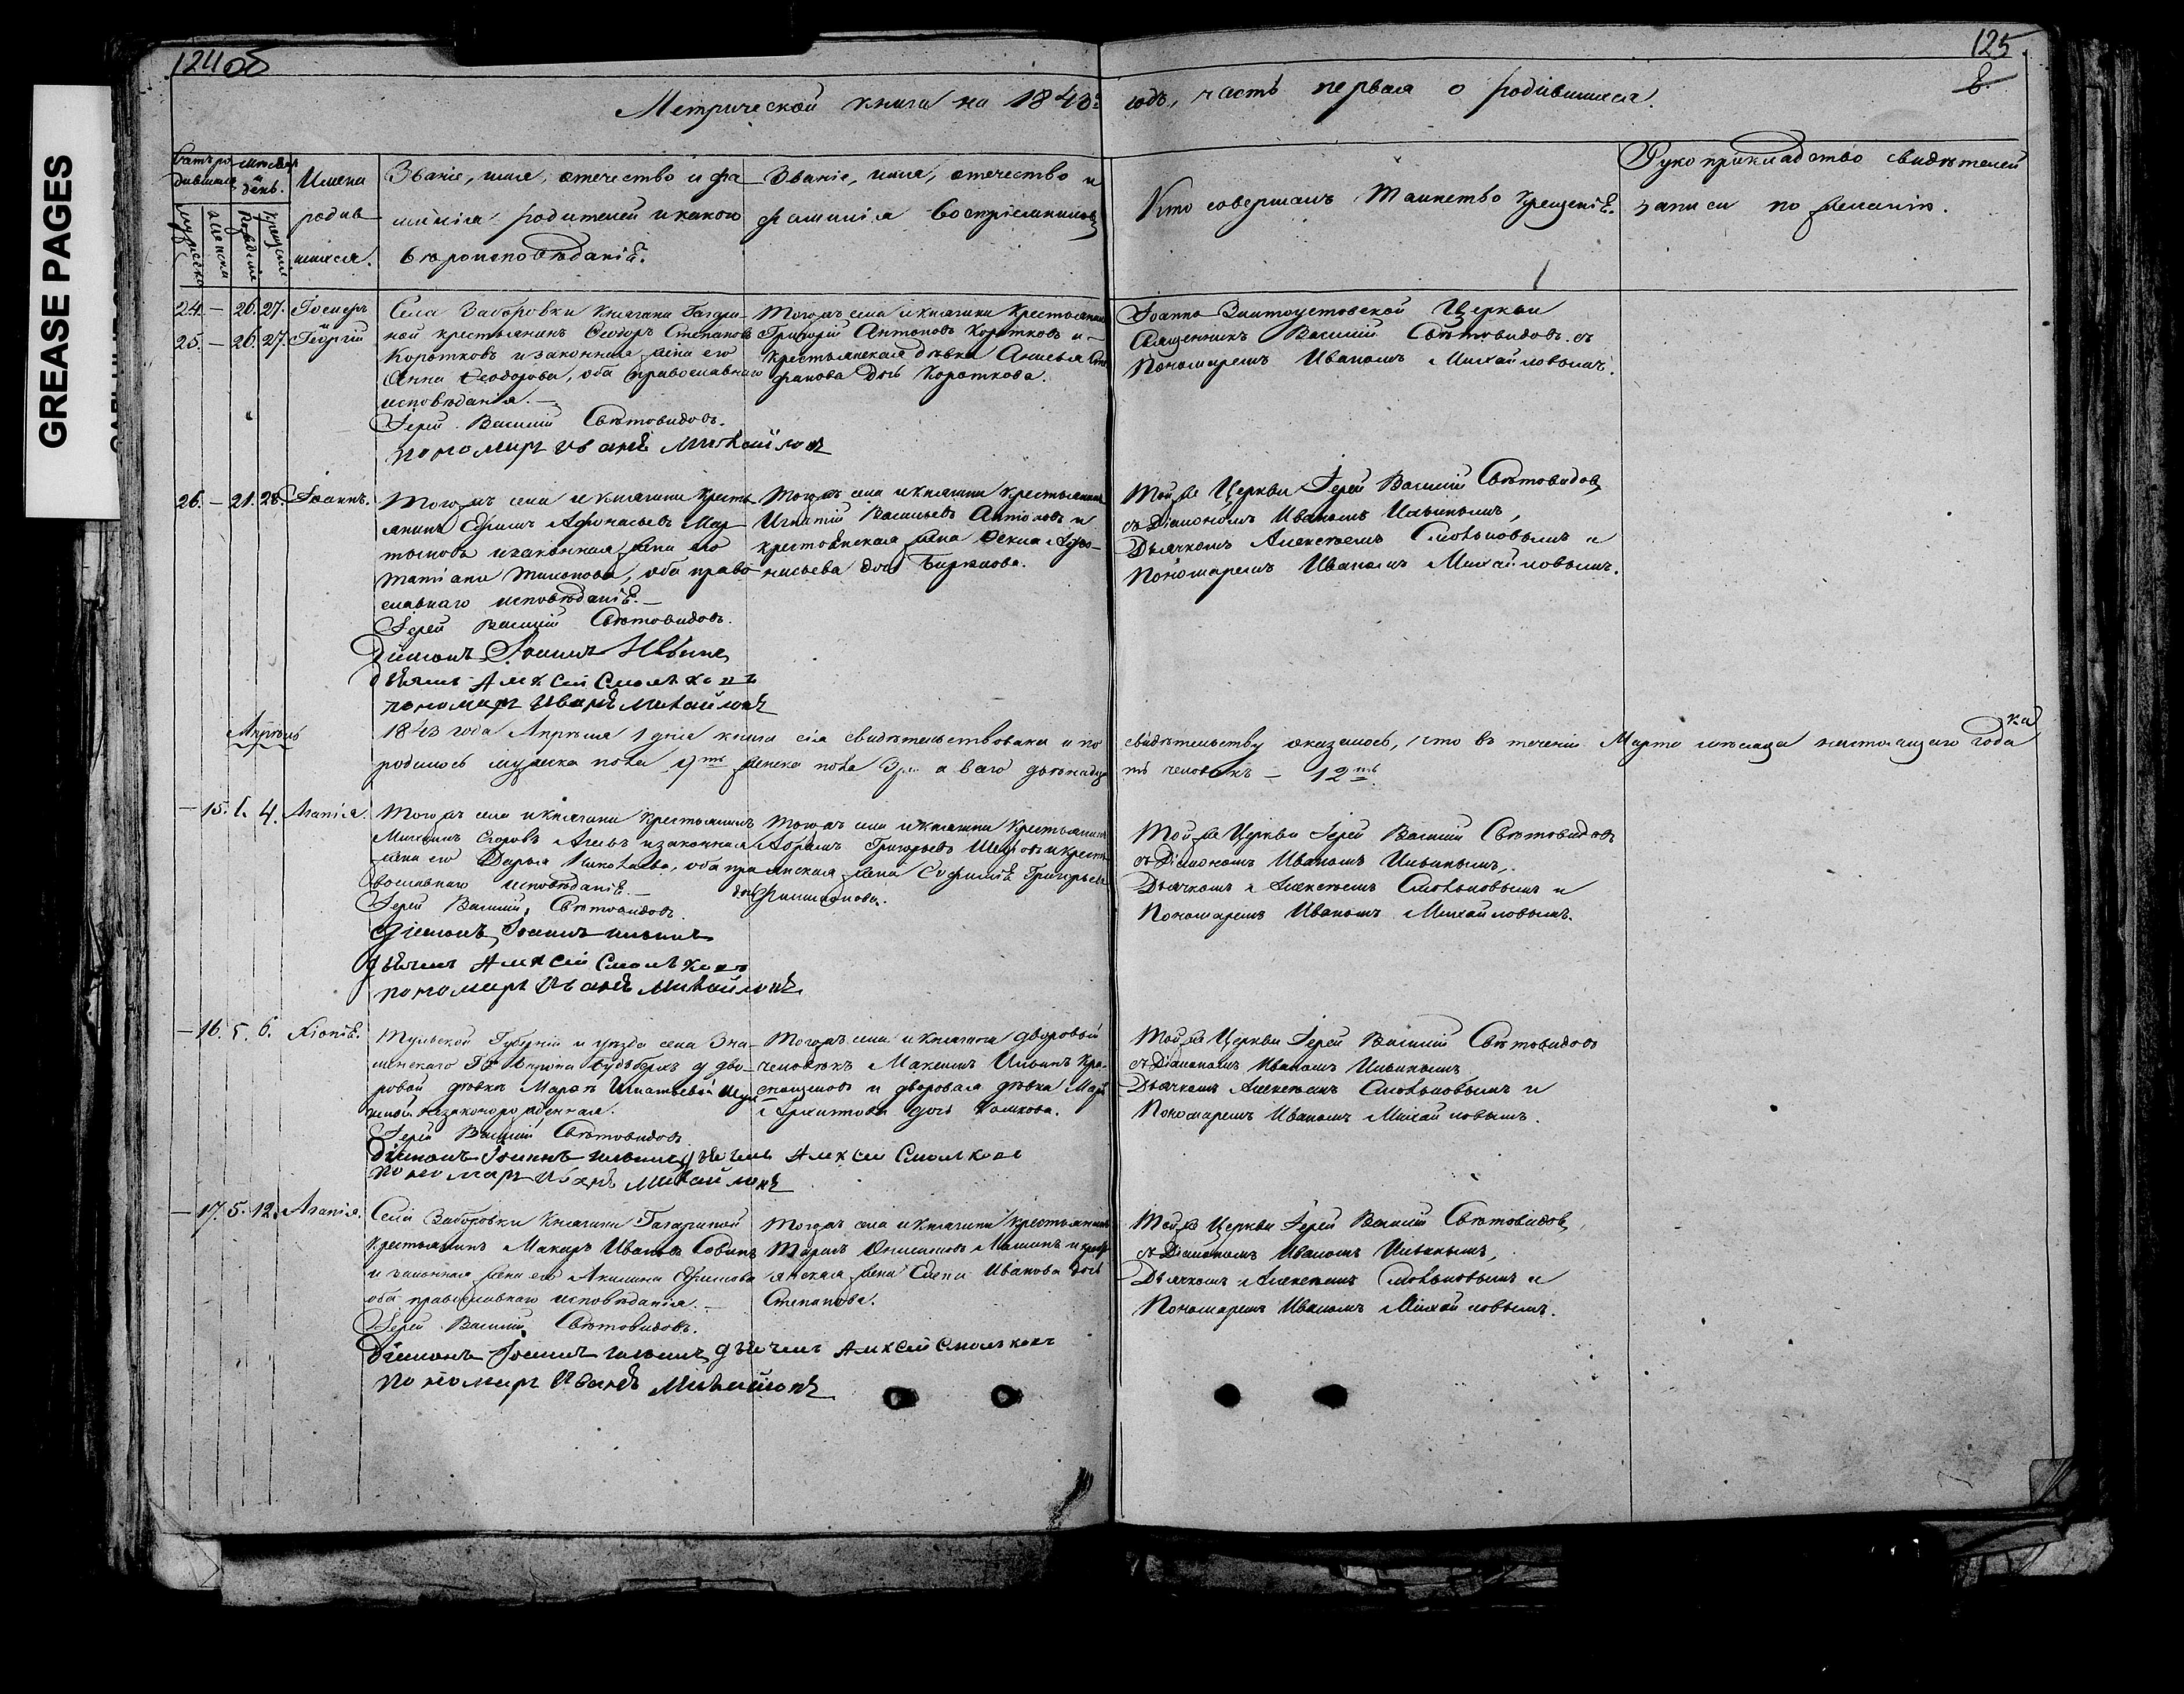 GREASE PAGES
124 об
125
8.
Метрической книги на 1843й годъ, часть первая о родившихся.
Мѣсяцъ и день.
Имена родив
шихся.
мужеска
женска
рожденія
крещенія
Званіе, имя, отечество и фа
милія родителей и какого
вѣроисповѣданія.
Званіе, имя, отечество и
фамилія воспріемниковъ
Кто совершалъ таинство крещенія.
Рукоприкладство свидѣтелей
записи по желанію.
24. — 26. 27.
25. — 26. 27. Георгій
Села Заборовки Княгини Гагари-
ной крестьянинъ Ѳеодоръ Степановъ
Коротковъ и законная жена его
Анна Ѳеодорова, оба православнаго
исповѣданія. —
Іерей Василій Свѣтовидовъ.
пономарь Иванъ Михайловъ
Тогожъ села и княгини крестьянинъ
Григорій Антоновъ Коротковъ и —
крестьянская дѣвка Анисья
фанова дочь Короткова.
Іоанно Златоустовской Церкви
Священникъ Василій Свѣтовидовъ съ
Пономаремъ Иваномъ Михайловымъ.
26. — 21. 28. Іоаннъ.
Тогожъ села и княгини кресть
янинъ Ефимъ Афонасьевъ Мар
тыновъ и законная жена его
Татіана, оба право
славнаго исповѣданія. —
Іерей Василій Свѣтовидовъ.
Діаконъ Іоаннъ Ильинъ
дьячекъ Алексей Смольковъ
пономарь Иванъ Михайловъ
Тогожъ села и княгини крестьянинъ
Игнатій Васильевъ Антоновъ и
крестьянская жена Ѳекла Афо-
насьева дочь
Той же Церкви Іерей Василій Свѣтовидовъ
съ Діакономъ Иваномъ Ильинымъ,
Дьячкомъ Алексѣемъ Смольковымъ и
Пономаремъ Иваномъ Михайловымъ.
Апрѣль
1843 года Апрѣля 1 дня книга сія свидѣтельствована и по свидѣтельству оказалось, что въ теченіи Марта мѣсяца настоящаго года
родилось мужеска пола 9ть женска пола 3и а всего двѣнадца ть человекъ — 12ть.
— 15. 1. 4. Агапія.
Тогожъ села и княгини крестьянинъ
Егоровъ и законная
жена его Дарья Николаева, оба пра
вославнаго исповѣданія. —
Іерей Василій Свѣтовидовъ.
Діаконъ Іоаннъ Ильинъ
дьячекъ Алексей Смольковъ
пономарь Иванъ Михайловъ
Тогожъ села и княгини крестьянинъ
Абрамъ Григорьевъ и кресть
янская жена Григорьева
дочь Филимонова.
Той же Церкви Іерей Василій Свѣтовидовъ
съ Діакономъ Иваномъ Ильинымъ,
Дьячкомъ Алексѣемъ Смольковымъ и
Пономаремъ Иваномъ Михайловымъ.
— 16. 5. 6. Хіонія.
Тульской Губерніи и уѣзда села Зна-
менскаго у дво-
ровой дѣвки Марѳы Игнатьевой
незаконорожденная.
Іерей Василій Свѣтовидовъ
Діаконъ Іоаннъ Ильинъ дьячекъ Алексей Смольковъ
пономарь Иванъ Михайловъ
Тогожъ села и княгини дворовый
человѣкъ Максимъ Ильинъ
и дворовая дѣвка
дочь
Той же Церкви Іерей Василій Свѣтовидовъ
съ Діакономъ Иваномъ Ильинымъ
Дьячкомъ Алексѣемъ Смольковымъ и
Пономаремъ Иваномъ Михайловымъ.
— 17. 5. 12. Агапія.
Села Заборовки Княгини Гагариной
крестьянинъ Макаръ Ивановъ
и законная жена его Акилина Ефимова
оба православнаго исповѣданія. —
Іерей Василій Свѣтовидовъ.
Діаконъ Іоаннъ Ильинъ дьячекъ Алексей Смольковъ
пономарь Иванъ Михайловъ
Тогожъ села и княгини крестьянинъ
Тарасъ и кресть
янская жена Елена Иванова дочь
Степанова.
Той же Церкви Іерей Василій Свѣтовидовъ,
съ Діакономъ Иваномъ Ильинымъ,
Дьячкомъ Алексѣемъ Смольковымъ и
Пономаремъ Иваномъ Михайловымъ.